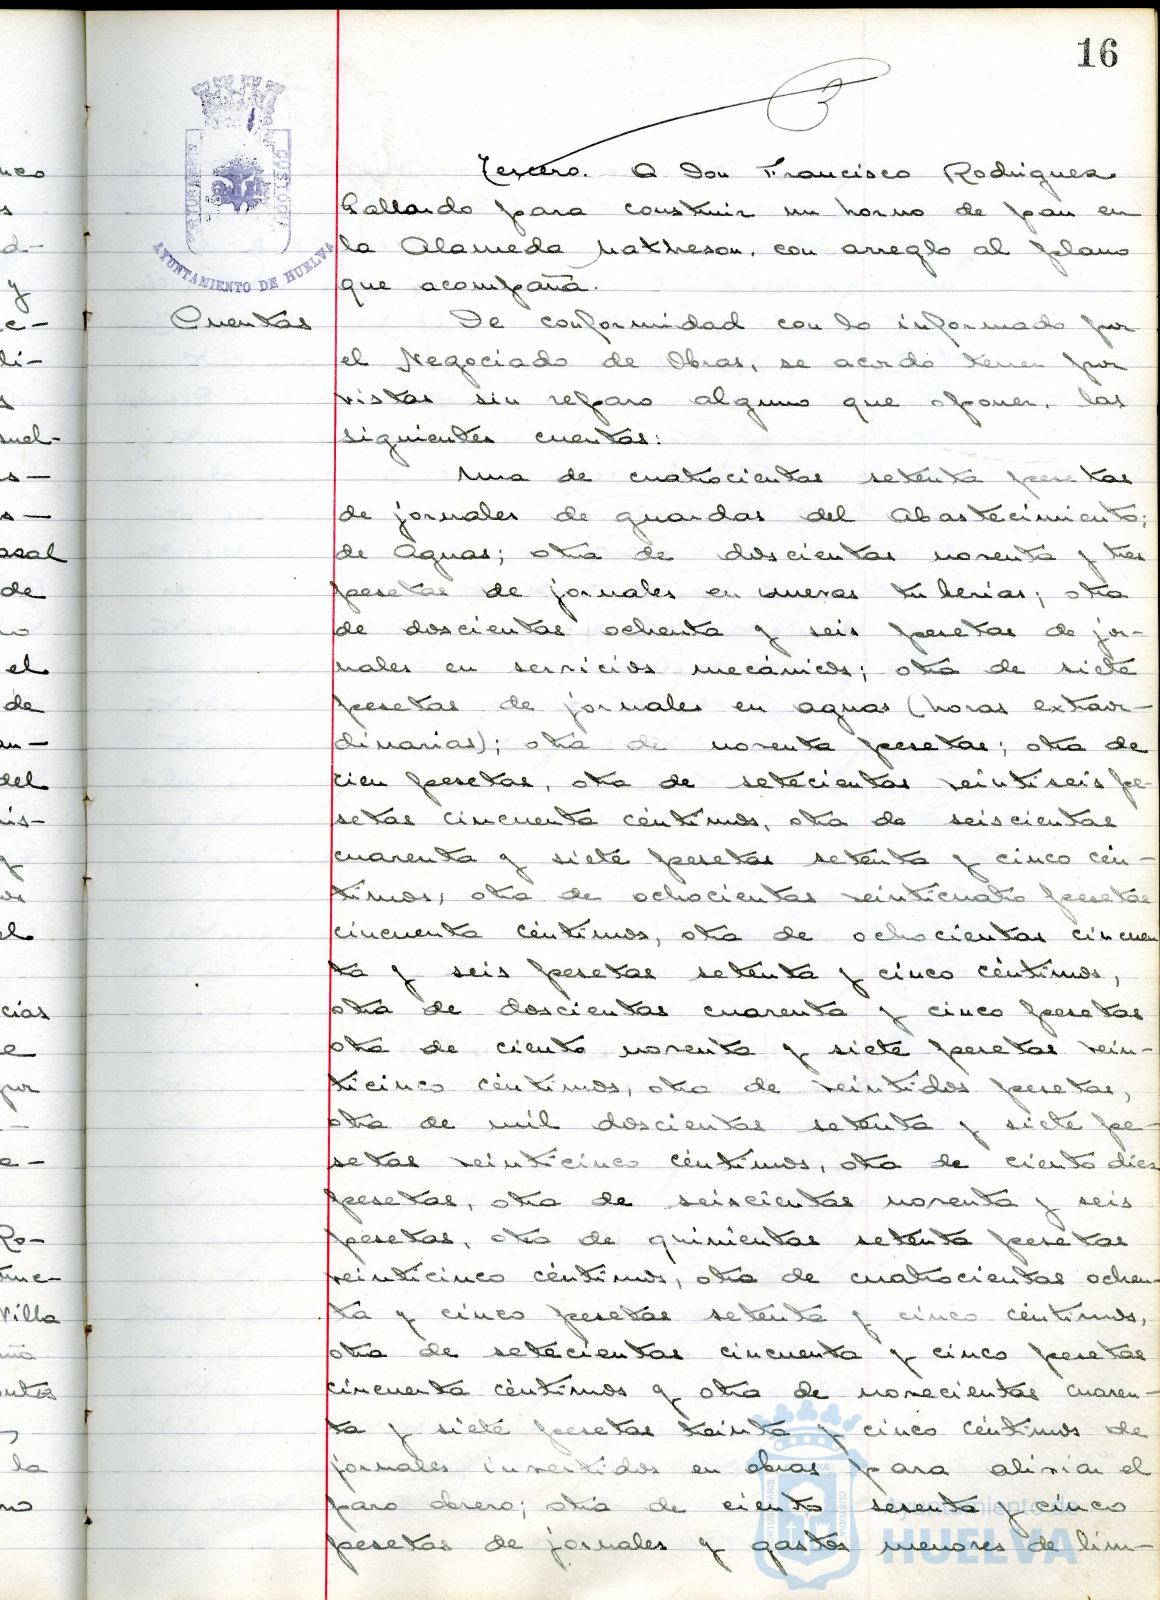 16
AYUNTAMIENTO DE HUELVA
Tercero. A Don Francisco Rodriguez
Gallardo para construir un horno de pan en
la Alameda Matheson, con arreglo al plano
que acompaña.
Cuentas
De conformidad con lo informado por
el Negociado de Obras, se acordó tener por
vistas sin reparo alguno que oponer, las
siguientes cuentas:
Una de cuatrocientas setenta pesetas
de jornales de guardas del Abastecimiento;
de Aguas; otra de doscientas noventa y tres
pesetas de jornales en nuevas tuberias; otra
de doscientas ochenta y seis pesetas de jor-
nales en servicios mecánicos; otra de siete
pesetas de jornales en aguas (horas extraor-
dinarias); otra de noventa pesetas; otra de
cien pesetas, otra de setecientas veintiseis pe-
setas cincuenta céntimos, otra de seiscientas
cuarenta y siete pesetas setenta y cinco cén-
timos, otra de ochocientas veinticuatro pesetas
cincuenta céntimos, otra de ochocientas cincuen
ta y seis pesetas setenta y cinco céntimos,
otra de doscientas cuarenta y cinco pesetas
otra de ciento noventa y siete pesetas vein-
ticinco céntimos, otra de veintidos pesetas,
otra de mil doscientas setenta y siete pe-
setas veinticinco céntimos, otra de ciento diez
pesetas, otra de seiscientas noventa y seis
pesetas, otra de quinientas setenta pesetas
veinticinco céntimos, otra de cuatrocientas ochen-
ta y cinco pesetas setenta y cinco céntimos,
otra de setecientas cincuenta y cinco pesetas
cincuenta céntimos y otra de novecientas cuaren-
ta y siete pesetas treinta y cinco céntimos de
jornales invertidos en obras para aliviar el
paro obrero; otra de ciento sesenta y cinco
pesetas de jornales y gastos menores de lim-
Ayuntamiento de
HUELVA